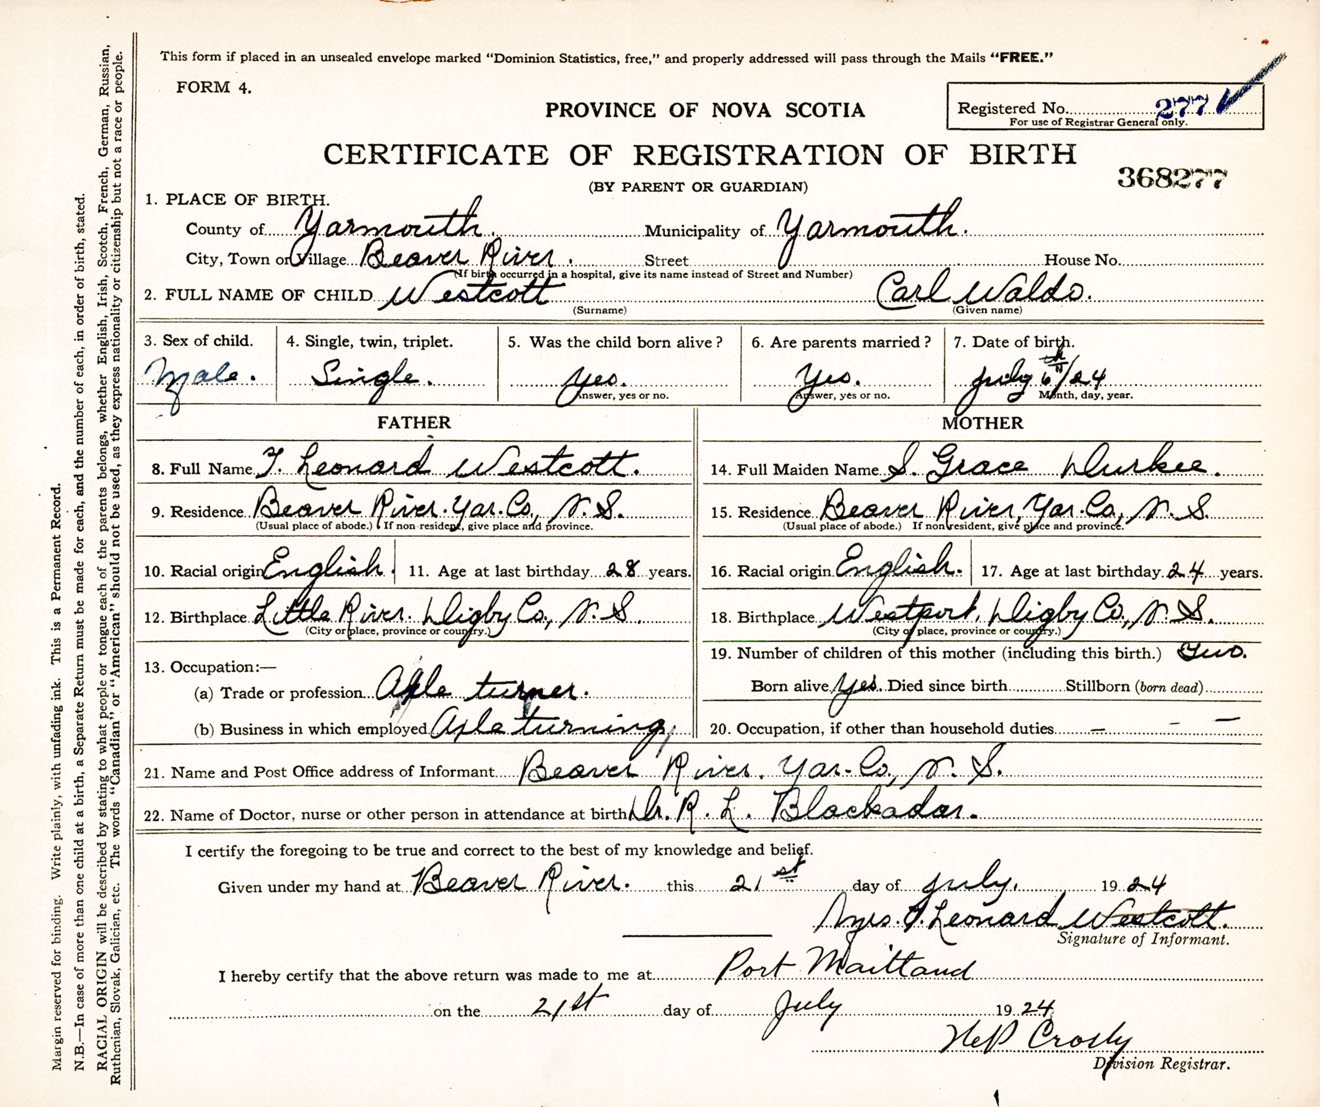 This form if placed in an unsealed envelope marked “Dominion Statistics, free,” and properly addressed will pass through the Mails “FREE.”
FORM 4.
PROVINCE OF NOVA SCOTIA
Registered No. 277
For use of Registrar General only.
CERTIFICATE OF REGISTRATION OF BIRTH
368277
(BY PARENT OR GUARDIAN)
1. PLACE OF BIRTH.
County of Yarmouth. Municipality of Yarmouth.
City, Town or Village Beaver River. Street House No.
(If birth occurred in a hospital, give its name instead of Street and Number)
2. FULL NAME OF CHILD Westcott Carl Waldo.
(Surname) (Given name)
3. Sex of child. 4. Single, twin, triplet. 5. Was the child born alive? 6. Are parents married? 7. Date of birth.
Male. Single. Yes. Yes. July 6th/24
Answer, yes or no. Answer, yes or no. Month, day, year.
FATHER MOTHER
8. Full Name Leonard Westcott. 14. Full Maiden Name S. Grace Durkee.
9. Residence Beaver River. Yar. Co., N. S. 15. Residence Beaver River, Yar. Co., N. S.
(Usual place of abode.) (If non-resident, give place and province. (Usual place of abode.) If non-resident, give place and province.
10. Racial origin English. 11. Age at last birthday 28 years. 16. Racial origin English. 17. Age at last birthday 24 years.
12. Birthplace Little River. Digby Co., N. S. 18. Birthplace Westport, Digby Co., N. S.
(City or place, province or country.) (City or place, province or country.)
13. Occupation:— 19. Number of children of this mother (including this birth.) Two.
(a) Trade or profession Axle turner. Born alive Yes. Died since birth Stillborn (born dead)
(b) Business in which employed Axle turning, 20. Occupation, if other than household duties — — —
21. Name and Post Office address of Informant Beaver River. Yar. Co., N. S.
22. Name of Doctor, nurse or other person in attendance at birth Dr. R. L. Blackadar.
I certify the foregoing to be true and correct to the best of my knowledge and belief.
Given under my hand at Beaver River. this 21st day of July. 1924
Mrs. Leonard Westcott.
Signature of Informant.
I hereby certify that the above return was made to me at Port Maitland
on the 21st day of July 1924
Crosby
Division Registrar.
Margin reserved for binding. Write plainly, with unfading ink. This is a Permanent Record.
N.B.—In case of more than one child at a birth, a Separate Return must be made for each, and the number of each, in order of birth, stated.
RACIAL ORIGIN will be described by stating to what people or tongue each of the parents belongs, whether English, Irish, Scotch, French, German, Russian,
Ruthenian, Slovak, Galician, etc. The words “Canadian” or “American” should not be used, as they express nationality or citizenship but not a race or people.